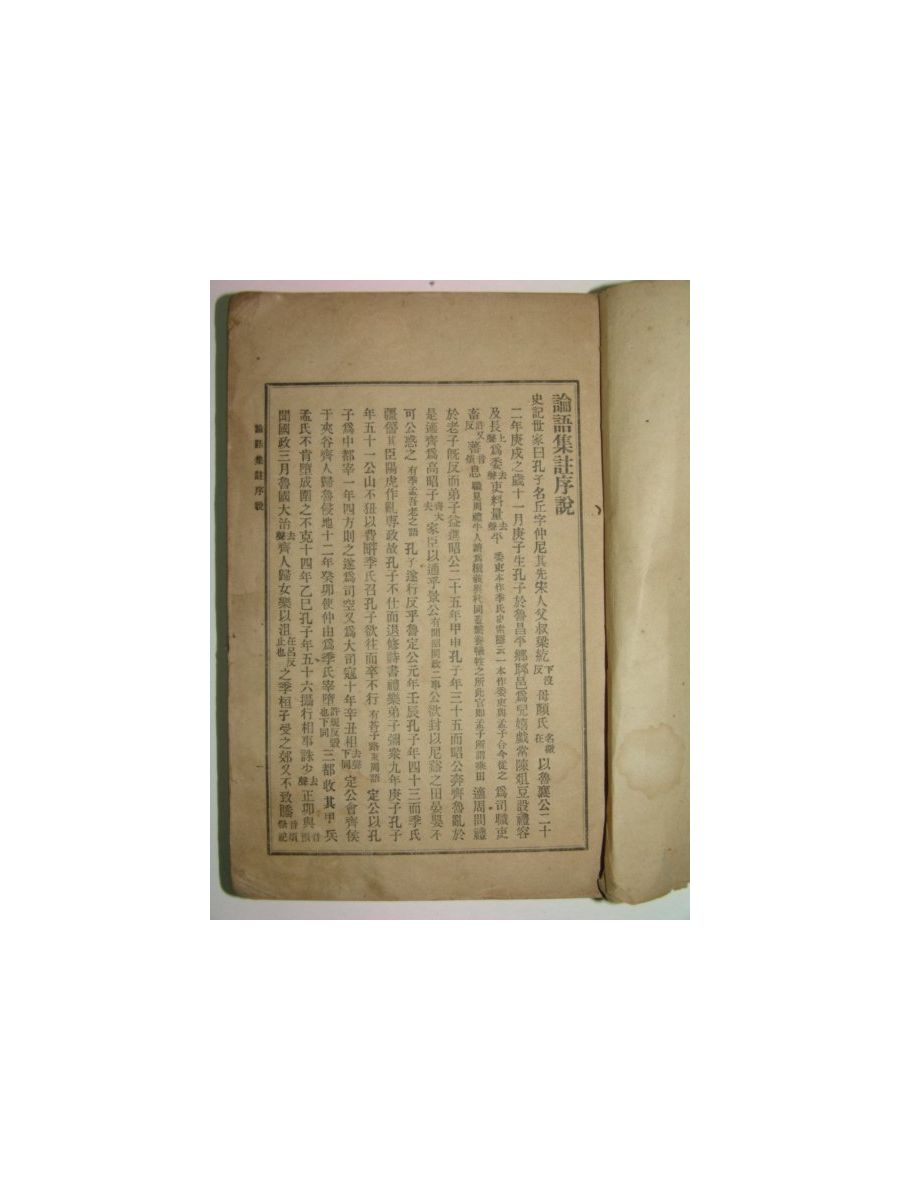 論語集註序說
史記世家曰孔子名丘字仲尼其先宋人父叔梁紇下沒反母顏氏名徵在以魯襄公二十
二年庚戌之歲十一月庚子生孔子於魯昌平鄉陬邑爲兒嬉戲常陳俎豆設禮容
及長上聲爲委去聲吏料量去聲平委吏本作季氏史索隱云一本作委吏與孟子合今從之爲司職吏
畜許又反蕃音煩息職見周禮牛人讀爲樴義與杙同蓋繫養犧牲之所此官卽孟子所謂乘田適周問禮
於老子旣反而弟子益進昭公二十五年甲申孔子年三十五而昭公奔齊魯亂於
是適齊爲高昭子齊大夫家臣以通乎景公有聞韶問政二事公欲封以尼谿之田晏嬰不
可公惑之有季孟吾老之語孔子遂行反乎魯定公元年壬辰孔子年四十三而季氏
彊僭其臣陽虎作亂專政故孔子不仕而退修詩書禮樂弟子彌衆九年庚子孔子
年五十一公山不狃以費畔季氏召孔子欲往而卒不行有答子路東周語定公以孔
子爲中都宰一年四方則之遂爲司空又爲大司寇十年辛丑相去聲下同定公會齊侯
于夾谷齊人歸魯侵地十二年癸卯使仲由爲季氏宰墮許規反毀也下同三都收其甲兵
孟氏不肯墮成圍之不克十四年乙巳孔子年五十六攝行相事誅少去聲正卯與音預
聞國政三月魯國大治去聲齊人歸女樂以沮在呂反止也之季桓子受之郊又不致膰音煩祭祀
論語集註序說